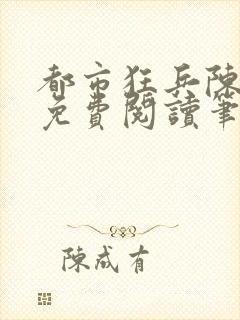 都市狂兵陳
免費閱讀筆
陳成有